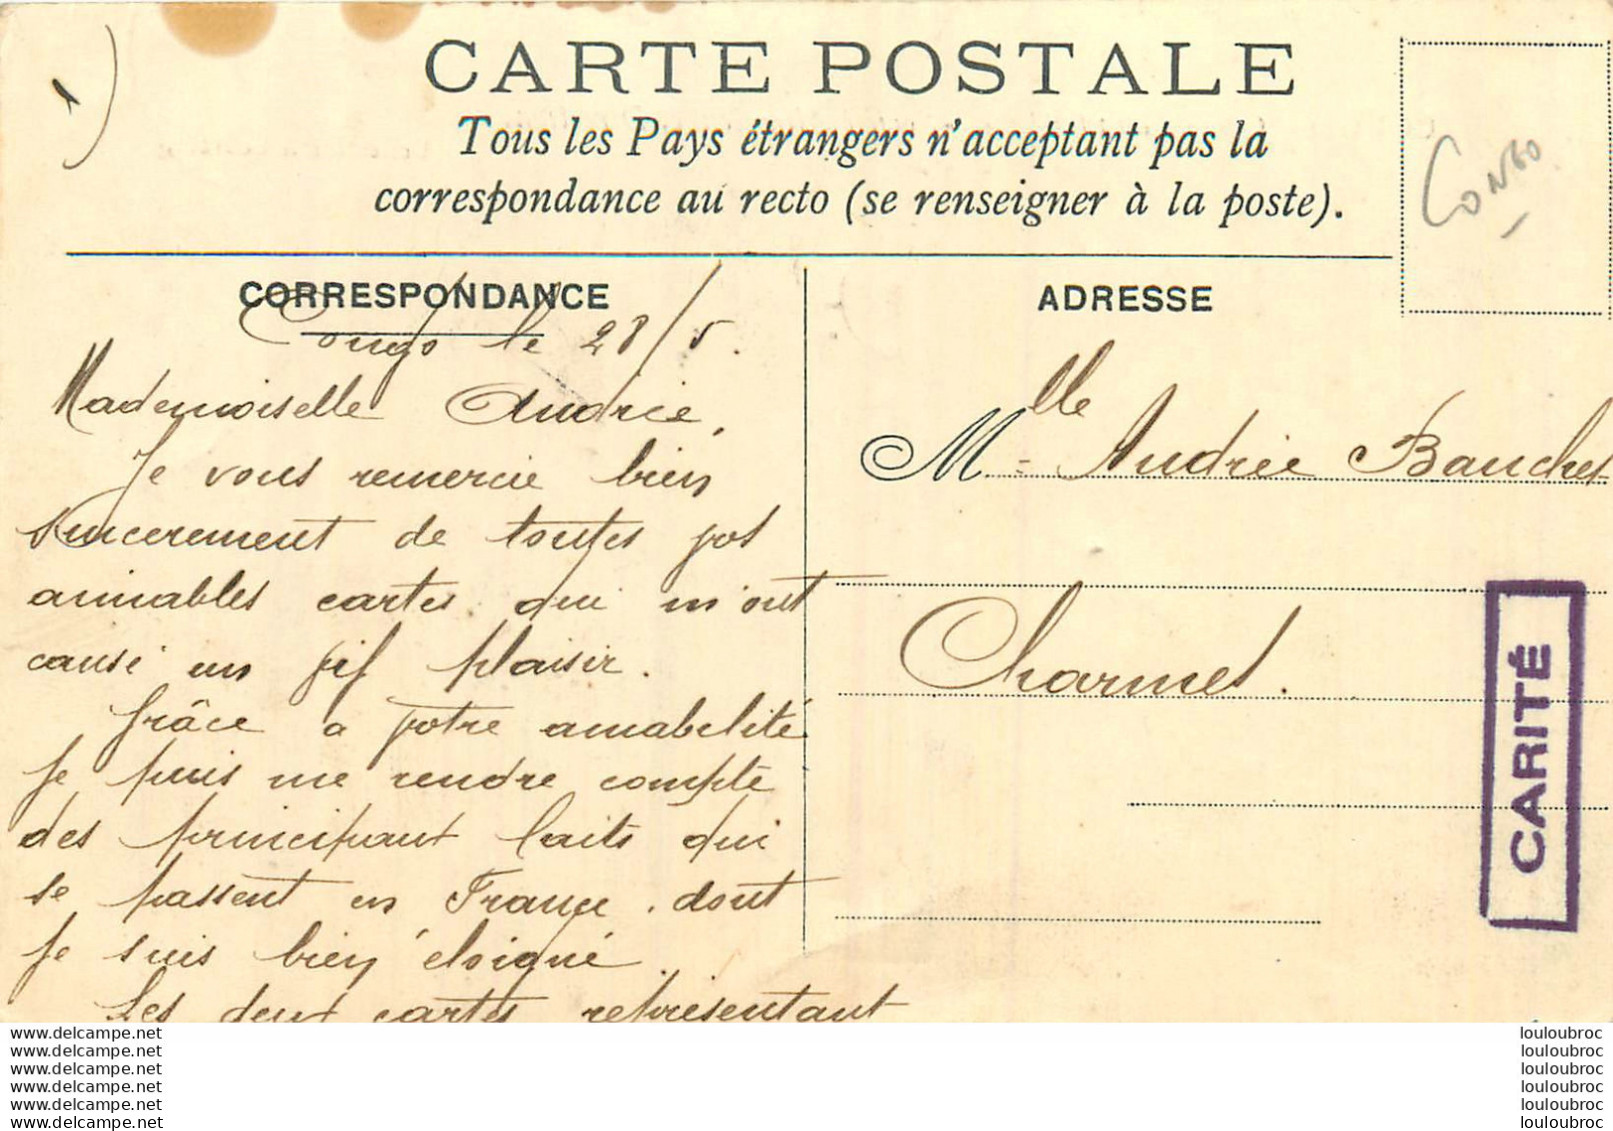 CARTE POSTALE
Tous les Pays étrangers n'acceptant pas la
correspondance au recto (se renseigner à la poste).
CONGO
CORRESPONDANCE
Congo le 28/5.
Mademoiselle Andrée,
Je vous remercie bien
sincerement de toutes vos
aimables cartes qui m'ont
causé un vif plaisir.
Grâce a votre amabelité
je puis me rendre compte
des principaux faits qui
se passent en France. dont
je suis bien éloigné.
Les deux cartes représentant
ADRESSE
Mlle Andrée Bauchet
Charmes.
CARITÉ
www.delcampe.net
www.delcampe.net
www.delcampe.net
www.delcampe.net
www.delcampe.net
www.delcampe.net
louloubroc
louloubroc
louloubroc
louloubroc
louloubroc
louloubroc